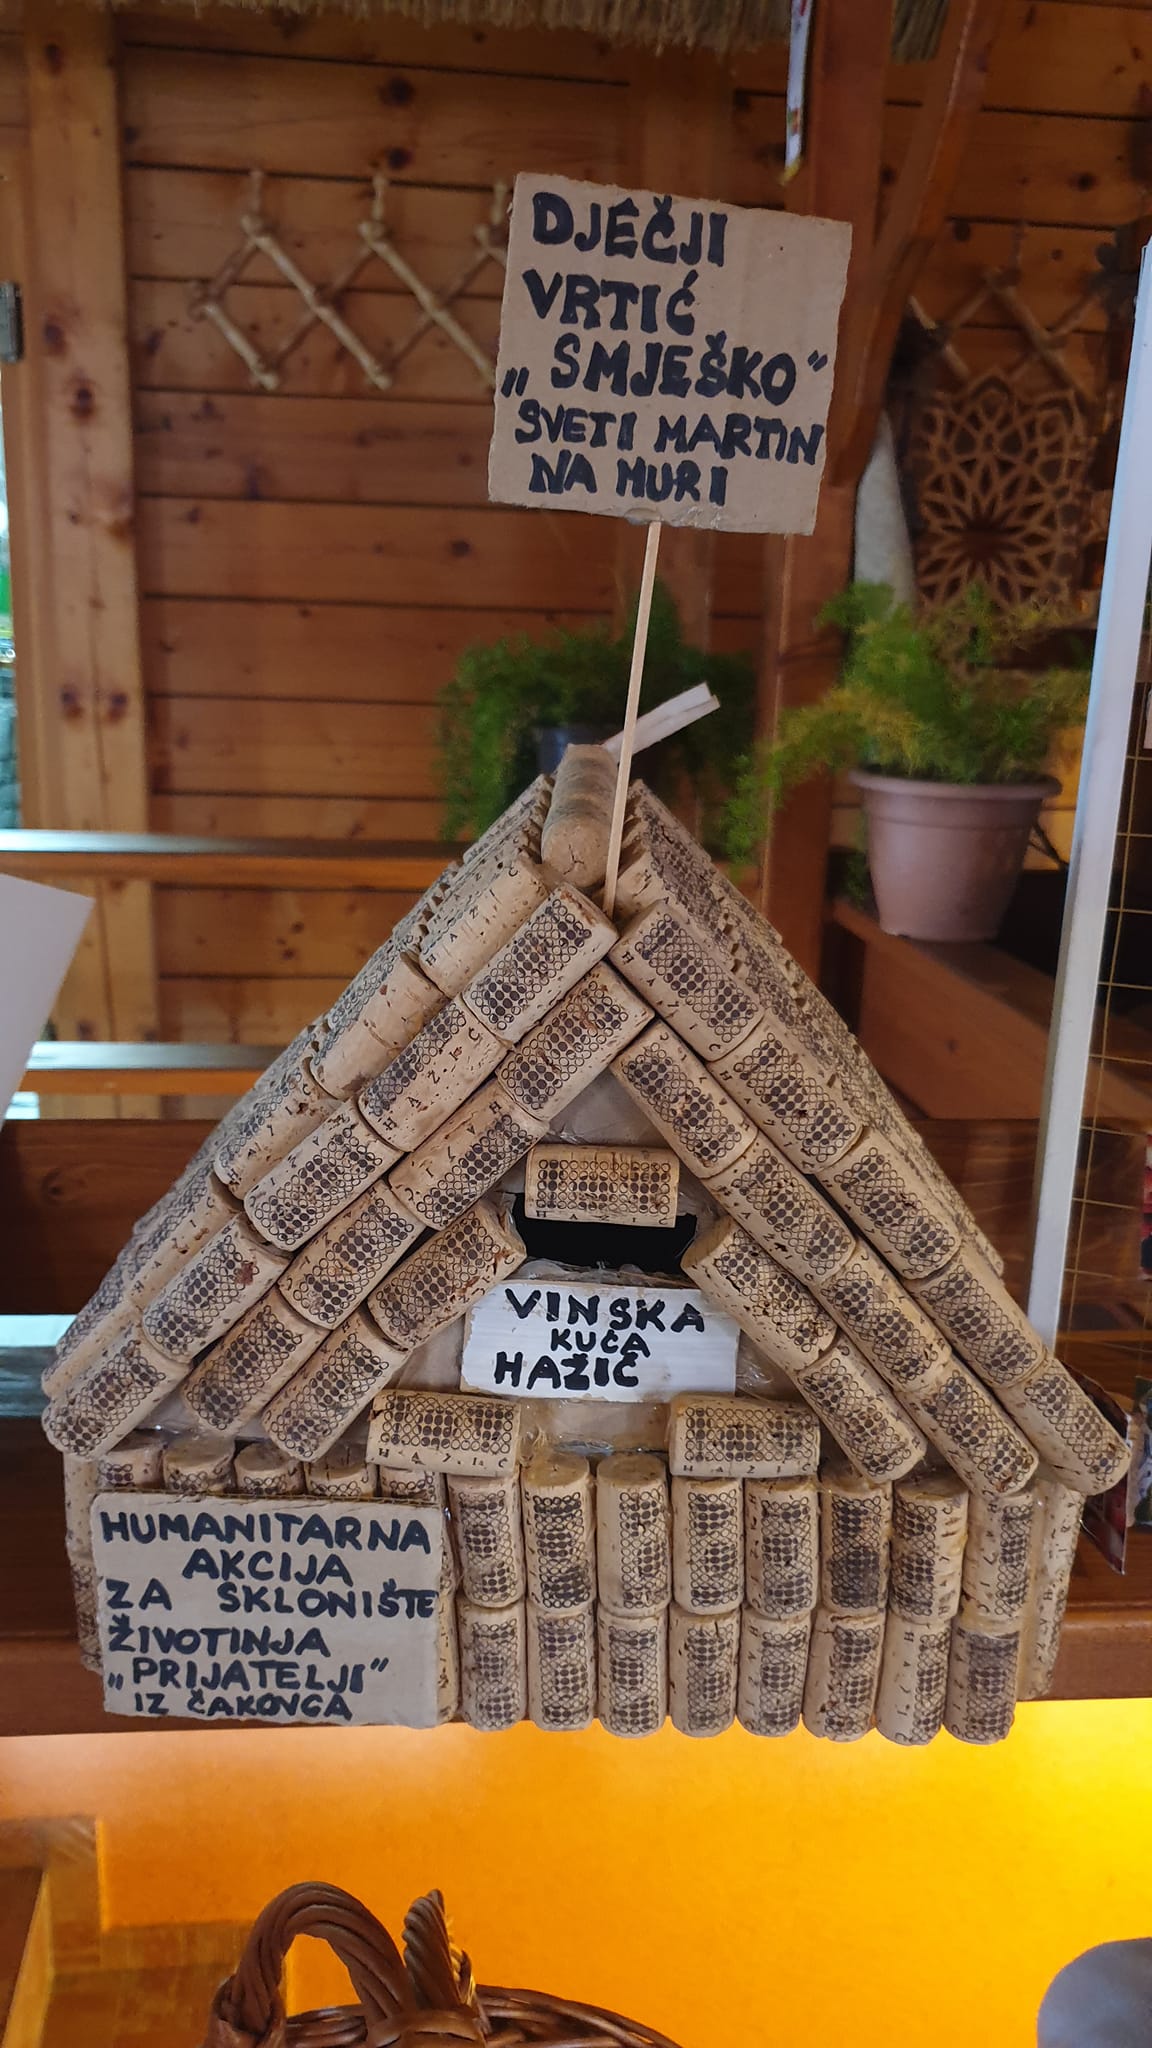 DJEČJI
VRTIĆ
„SMJEŠKO"
SVETI MARTIN
NA MURI
VINSKA
KUĆA
HAŽIĆ
HAŽIĆ
HAŽIĆ
HAŽIĆ
HUMANITARNA
AKCIJA
ZA SKLONIŠTE
ŽIVOTINJA
„PRIJATELJI"
IZ ČAKOVCA